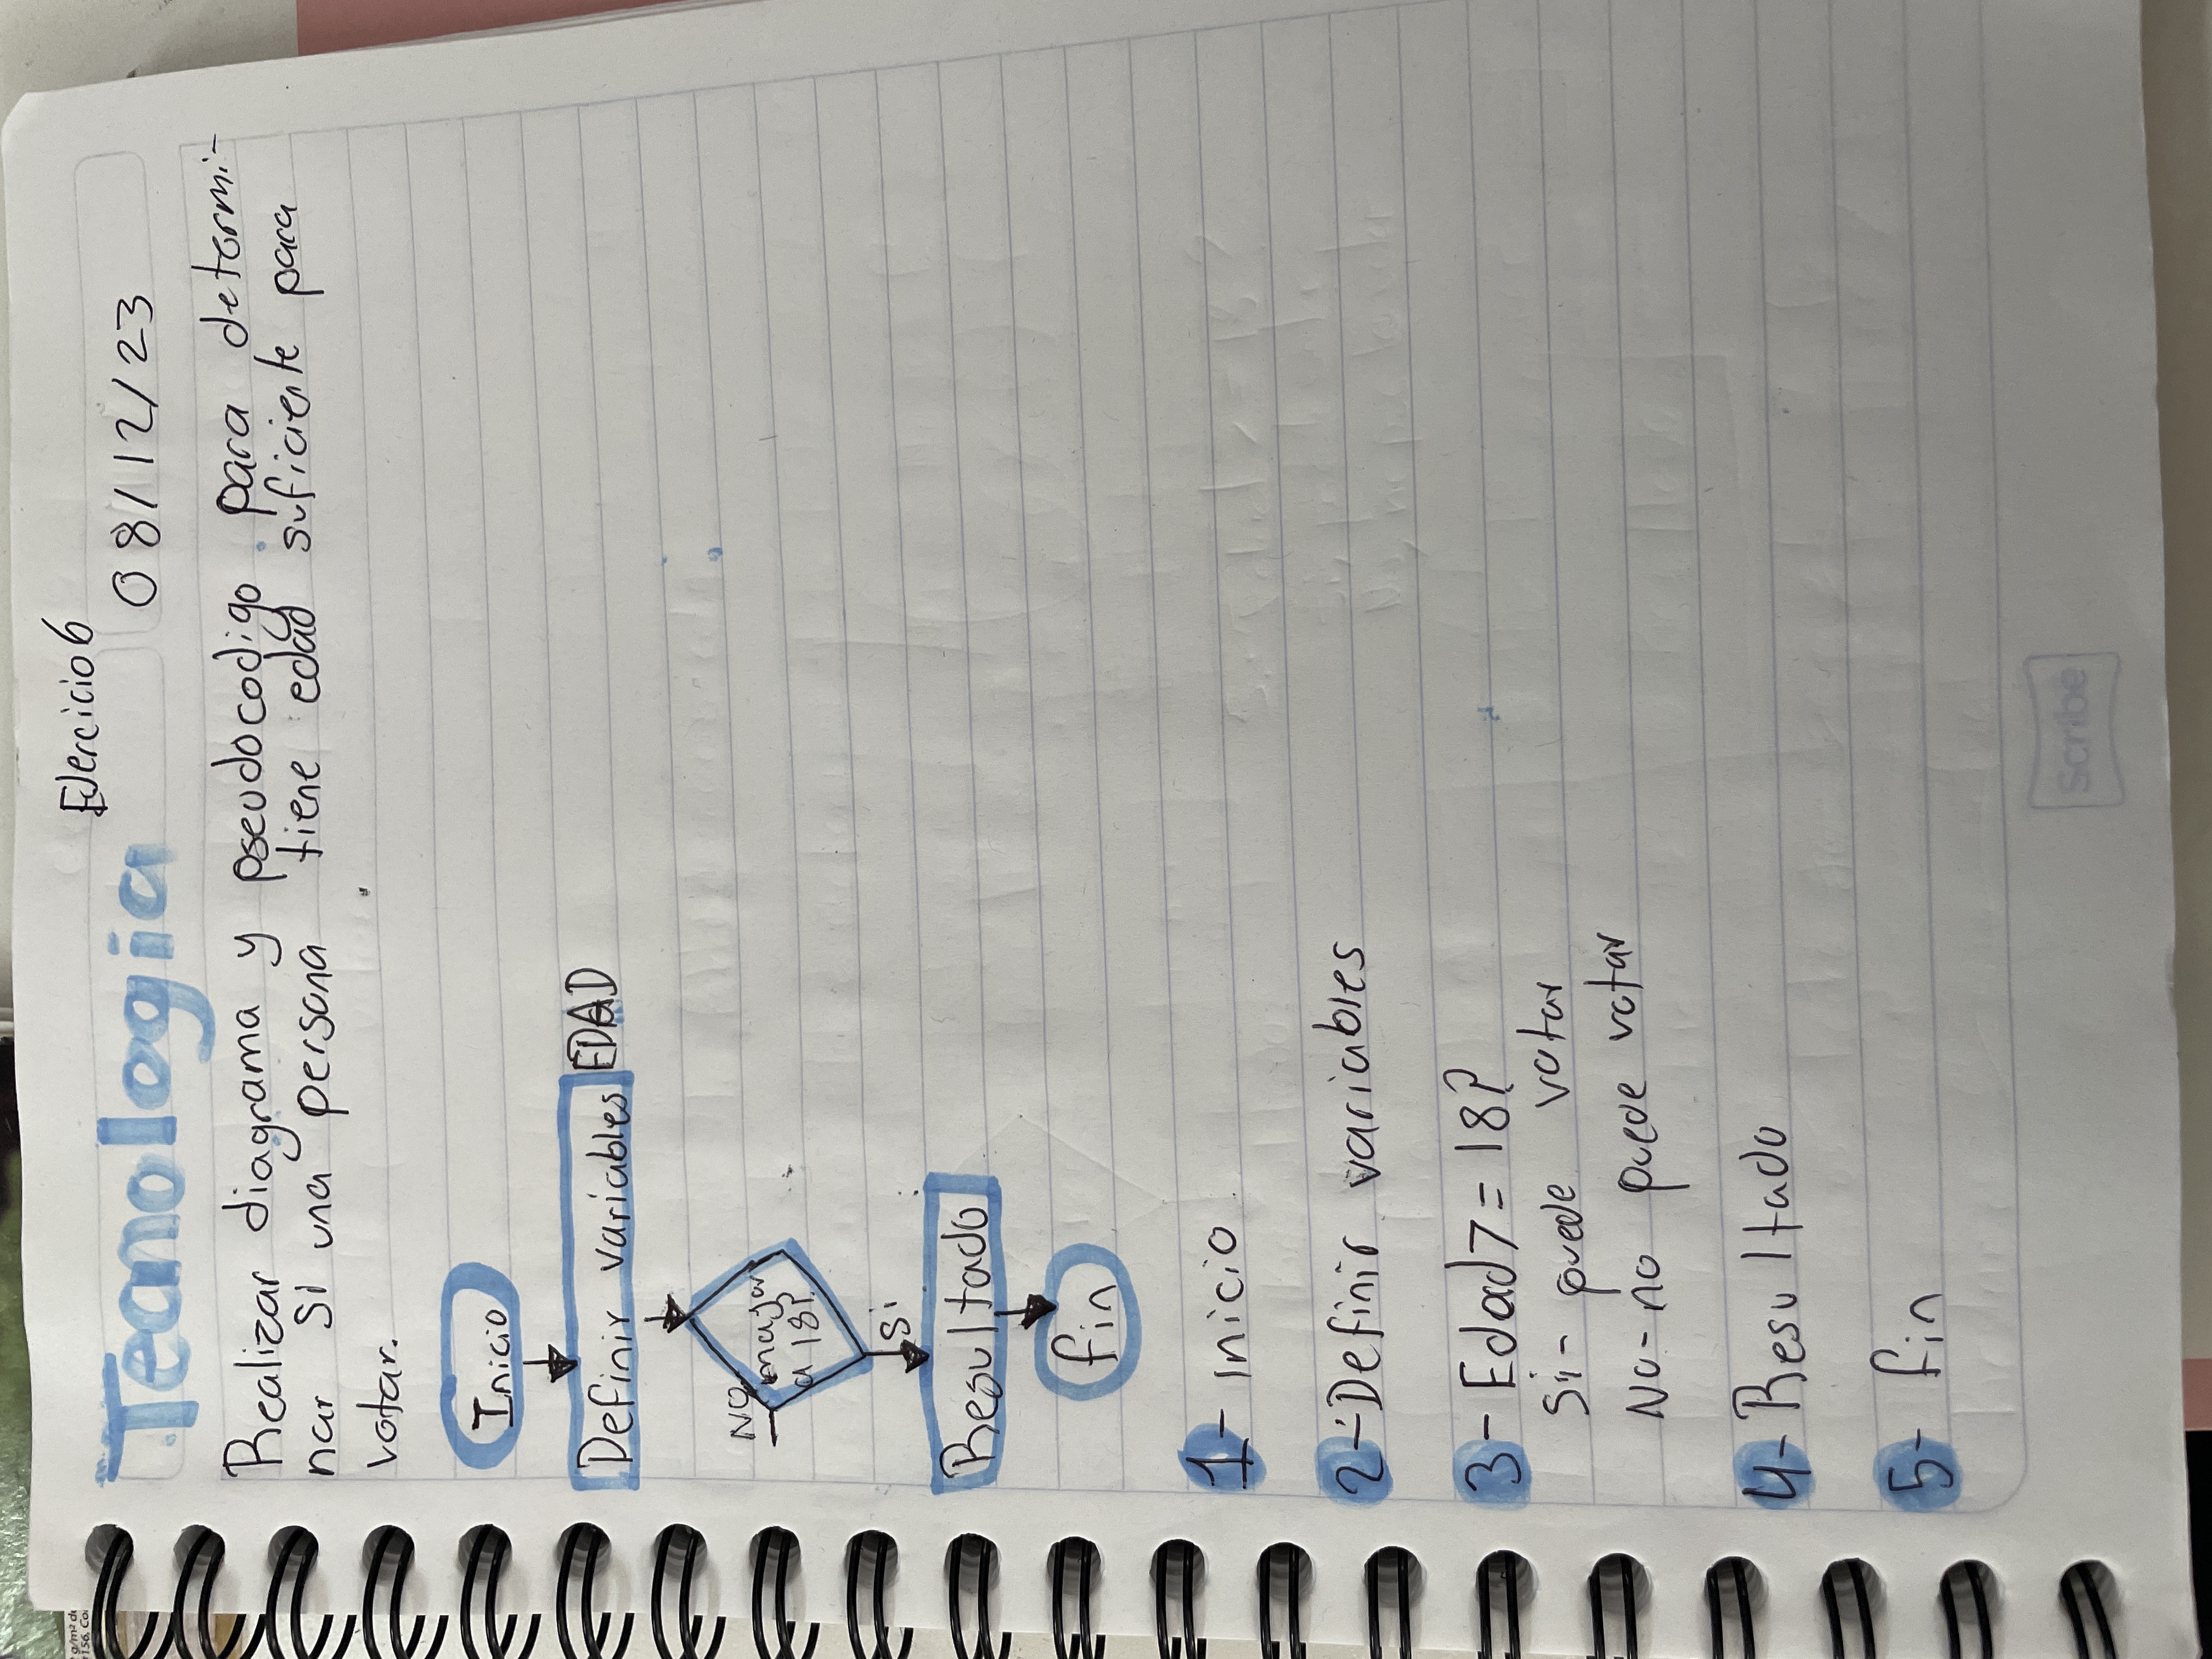 Ejercicio 6
Teanologia 08/12/23
Realizar diagrama y pseudocodigo para determi-
nar si una persona tiene edad suficiente para
votar.
Inicio
Definir variables EDAD
mayor
a 18?
NO
Si
Resultado
fin
1- Inicio
2- Definir variables
3- Edad>=18?
Si- puede votar
No- no puede votar
4- Resultado
5- fin
Scribe